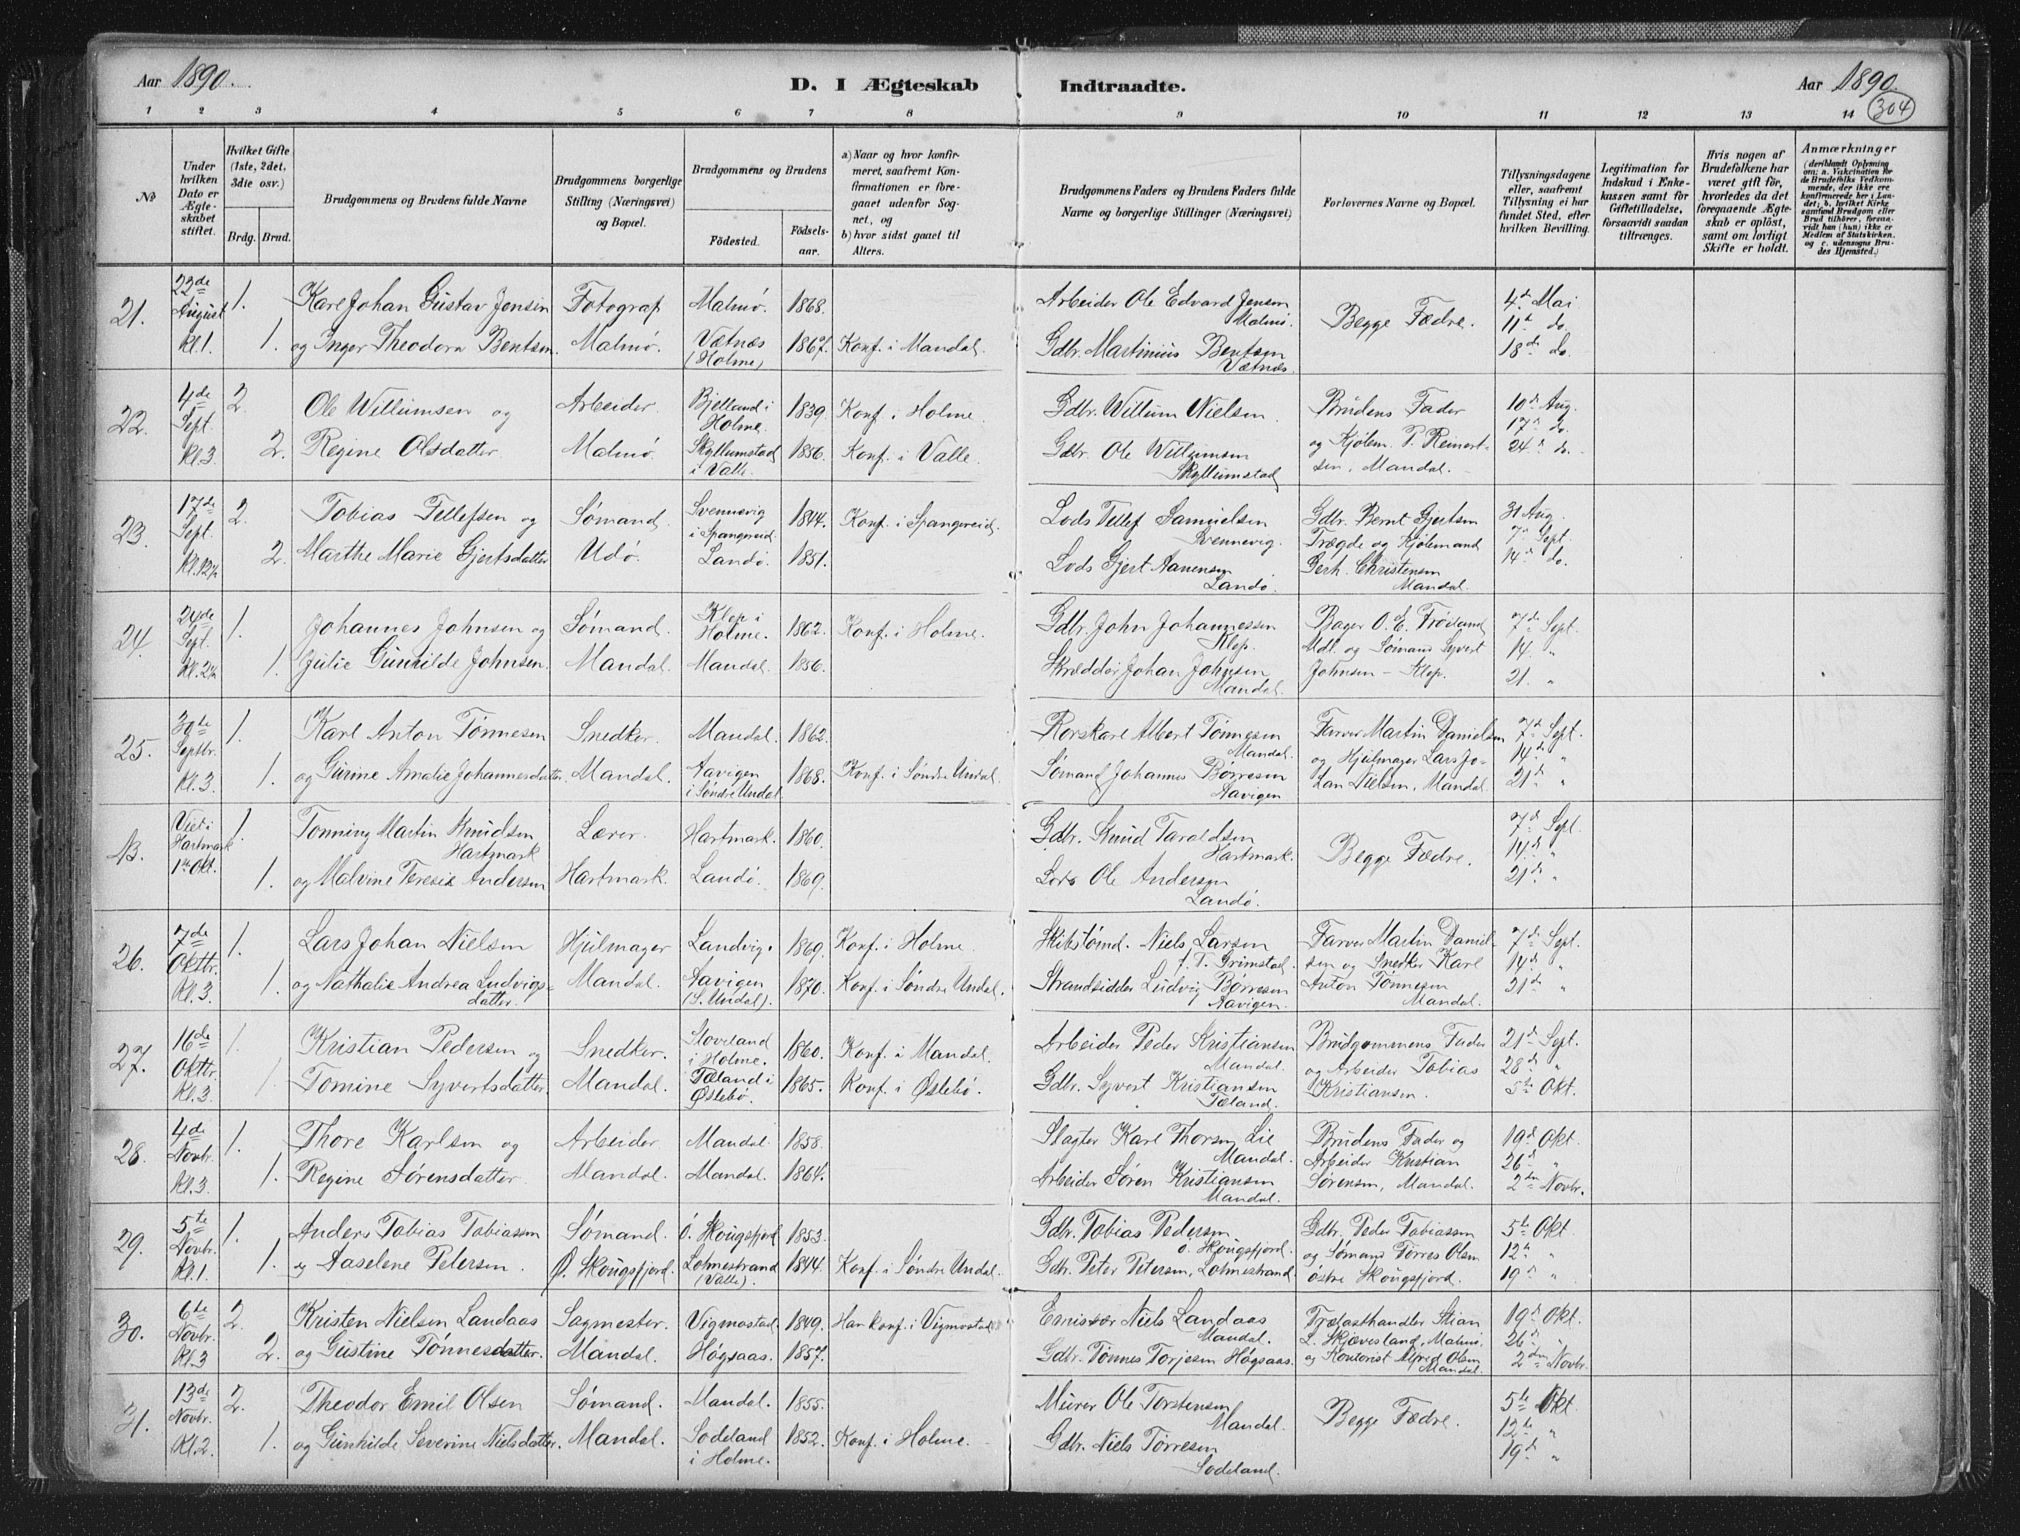 Aar 1890.
D. I Ægteskab Indtraadte.
Aar 1890.
304
1 2 3 4 5 6 7 8 9 10 11 12 13 14
No
Under hvilken Dato er Ægteskabet stiftet.
Hvilket Gifte (1ste, 2det, 3die osv.)
Brdg. Brud.
Brudgommens og Brudens fulde Navne
Brudgommens borgerlige Stilling (Næringsvei) og Bopæl.
Brudgommens og Brudens
Födested.
Födsels-aar.
a) Naar og hvor konfirmeret, saafremt Konfirmationen er foregaaet udenfor Sognet, og
b) hvor sidst gaaet til Alters.
Brudgommens Faders og Brudens Faders fulde Navne og borgerlige Stillinger (Næringsvei)
Forlovernes Navne og Bopæl.
Tillysningsdagene eller, saafremt Tillysning ei har fundet Sted, efter hvilken Bevilling.
Legitimation for Indskud i Enkekassen samt for Giftetilladelse, forsaavidt saadan tiltrænges.
Hvis nogen af Brudefolkene har været gift för, hvorledes da det foregaaende Ægteskab er oplöst, samt om lovligt Skifte er holdt.
Anmærkninger
21. 22de August Kl. 1. 1. Karl Johan Gustav Jensen Fotograf Malmø. 1868. Arbeider Ole Edvard Jensen Malmø. Begge Fædre. 4de Mai
1. og Inger Theodora Bentsen Malmø. Vætnæs (Holme) 1867. Konf. i Mandal. Gdbr. Martinius Bentsen Vætnæs. 11te do. 18de do.
22. 4de Sept. Kl. 3. 2. Ole Willumsen og Arbeider Bjelland i Holme. 1839. Konf. i Holme. Gdbr. Willum Nielsen. Brudens Fader 10de Aug. 17de do.
2. Regine Olsdatter Malmø. Skyllumstad i Valle. 1856. Konf. i Valle. Gdbr. Ole Willumsen Skyllumstad og Kjølem. P. Reinertsen, Mandal. 24de do.
23. 17de Sept. Kl. 12½ 2. Tobias Tellefsen og Sømand. Svennevig i Spangereid. 1844. Konf. i Spangereid. Lods Tellef Samuelsen Svennevig. Gdbr. Bernt Gjertsen Trægde og Kjølemand 31 Aug. 7de Sept.
2. Marthe Marie Gjertsdatter Udø. Landø. 1851. Lods Gjert Aanensen Landø. Gerh. Christensen Mandal. 14de do.
24. 24de Sept. Kl. 2½ 1. Johannes Johnsen og Sømand. Klep i Holme. 1862. Konf. i Holme. Gdbr. John Johannessen Klep. Bager O. E. Frøiland 7de Sept.
1. Julie Gunhilde Johnsen. Mandal. Mandal. 1856. Skrædder Johan Johnsen Mandal. Mdl. og Sømand Syvert Johnsen - Klep. 14. " 21. "
25. 30te Septbr. Kl. 3. 1. Karl Anton Tønnesen Snedker. Mandal. 1862. Korskarl Albert Tønnesen Mandal. Farver Martin Danielsen 7de Sept. 14de "
1. og Gurine Amalie Johannesdatter. Mandal. Aavigen i Søndre Undal. 1868. Konf. i Søndre Undal. Sømand Johannes Børresen Aavigen og Hjulmager Lars Johan Nielsen, Mandal. 21de "
B. Viet i Hartmark 1ste Okt. 1. Tønning Martin Knudsen Hartmark Lærer. Hartmark. 1860. Gdbr. Knud Taraldsen Hartmark. Begge Fædre. 7de Sept. 14de "
1. og Malvine Teresie Andersen Hartmark. Landø. 1869. Lods Ole Andersen Landø. 21de "
26. 7de Oktbr. Kl. 3. 1. Lars Johan Nielsen Hjulmager Landvig. 1869. Konf. i Holme. Skibstømd. Niels Larsen f. T. Grimstad. Farver Martin Danielsen og Snedker Karl 7de Sept. 14de "
1. og Nathalie Andrea Ludvigsdatter. Mandal. Aavigen (S. Undal). 1870. Konf. i Søndre Undal. Strandsidder Ludvig Børresen Aavigen. Anton Tønnesen Mandal. 21de "
27. 16de Oktbr. Kl. 3. 1. Kristian Pedersen og Snedker. Stoveland i Holme. 1860. Konf. i Mandal. Arbeider Peder Kristiansen Mandal. Brudgommens Fader 21de Sept. 28de "
1. Tomine Syvertsdatter. Mandal. Tæland i Østebø. 1865. Konf. i Østebø. Gdbr. Syvert Kristiansen Tæland. og Arbeider Tobias Kristiansen. 5te Okt.
28. 4de Novbr. Kl. 3. 1. Thore Karlsen og Arbeider Mandal 1858. Slagter Karl Thorsen Lie Mandal. Brudens Fader og 19de Okt.
1. Regine Sørensdatter. Mandal. Mandal. 1864. Arbeider Søren Kristiansen Mandal. Arbeider Kristian Sørensen, Mandal. 26de " 2den Novbr.
29. 5te Novbr. Kl. 1. 1. Anders Tobias Tobiassen Sømand. Ö. Skougsfjord 1853. Gdbr. Tobias Pedersen Ö. Skougsfjord. Gdbr. Peder Tobiassen 5te Okt.
1. og Aaselene Petersen. Ø. Skougsfjord. Lohnestrand (Valle). 1844. Konf. i Søndre Undal. Gdbr. Peter Petersen, Lohnestrand. og Sømand Tørres Olsen østre Skougsfjord. 12te " 19de "
30. 6te Novbr. Kl. 3 2. Kristen Nielsen Landaas Sagmester. Vigmostad 1849. Han konf. i Vigmostad. Emissær Niels Landaas Mandal. Trælasthandler Stian L. Skjævesland, Malmø 19de Okt. 26de "
2. og Gustine Tønnesdatter. Mandal. Høgsaas. 1857. Gdbr. Tønnes Torjesen Høgsaas. og Kontorist Alfred Olsen Mandal. 2den Novbr.
31. 13de Novbr. Kl. 2. 2. Theodor Emil Olsen Sømand. Mandal. 1855. Murer Ole Torstensen Mandal. Begge Fædre. 5te Okt. 12te "
1. og Gunhilde Severine Nielsdatter. Mandal. Sodeland i Holme. 1852. Konf. i Holme. Gdbr. Niels Tørresen Sodeland. 19de "